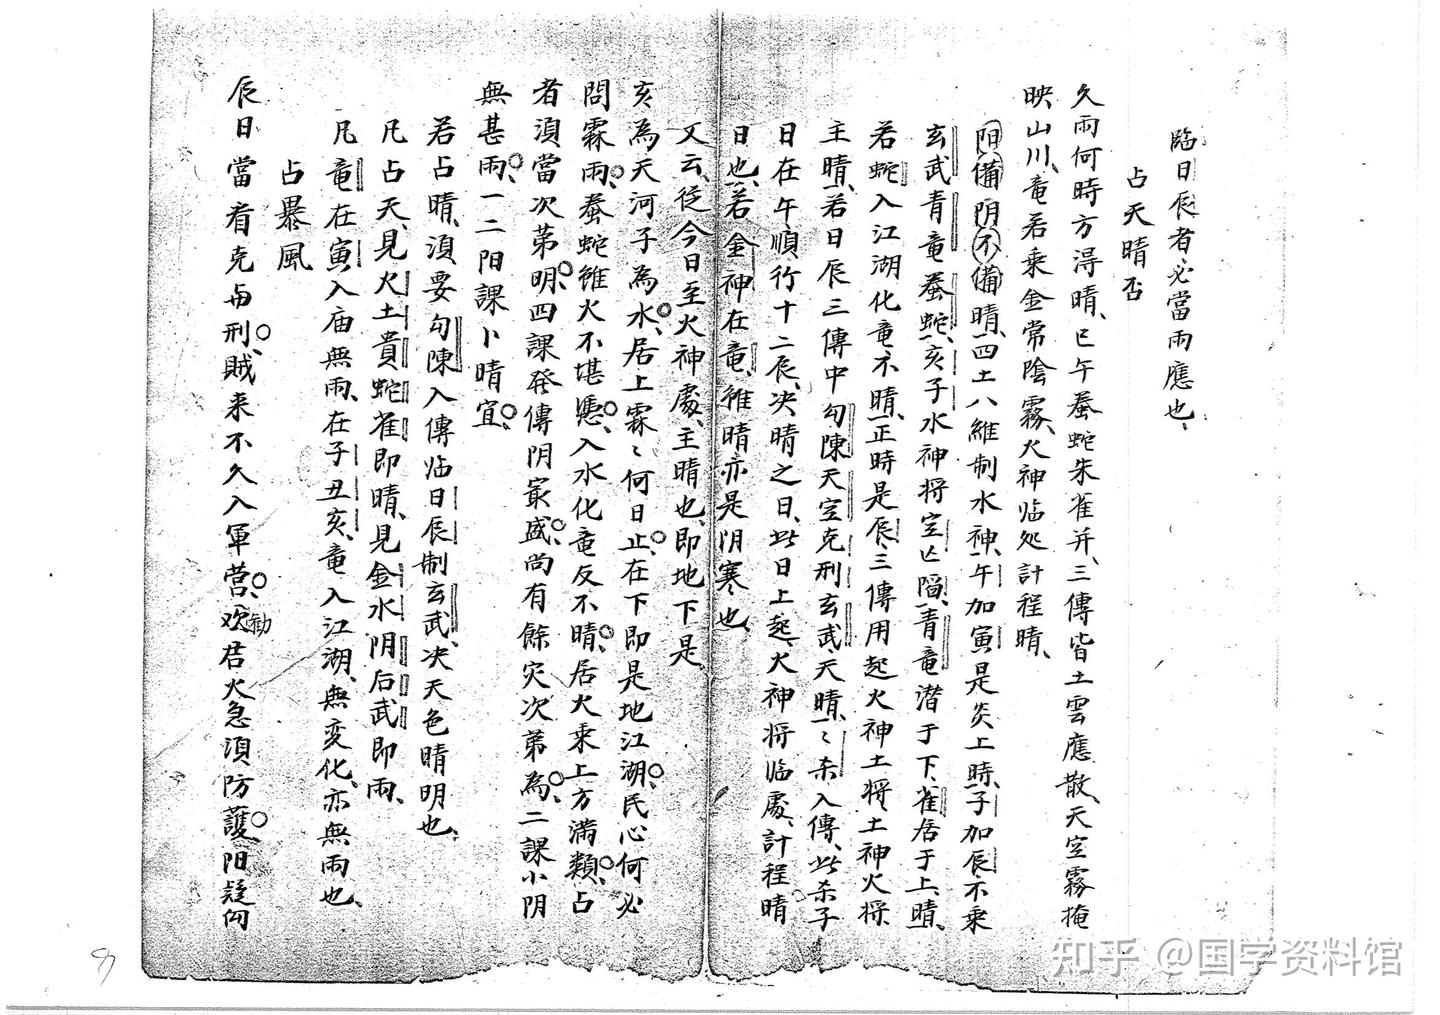 臨日辰者必當雨應也
占天晴否
久雨何時方得晴巳午螣蛇朱雀并三傳皆土雲應散天空霧掩
映山川竜若乘金常陰霧火神临处計程晴
阳備阴不備晴四土八維制水神午加寅是炎上時子加辰不乘
玄武青竜螣蛇亥子水神将空亡陷青竜潜于下雀居于上晴
若蛇入江湖化竜不晴正時是辰三傳用起火神土将土神火将
主晴若日辰三傳中勾陳天空克刑玄武天晴〻杀入傳此杀子
日在午順行十二辰决晴之日此日上起火神将临處計程晴
日也若金神在竜雖晴亦是阴寒也
又云從今日至火神處主晴也即地下是
亥為天河子為水居上霖〻何日止在下即是地江湖民心何必
問霖雨螣蛇雖火不堪憑入水化竜反不晴居火乘上方满類占
者須當次第明四課發傳阴最盛尚有餘灾次第為二課小阴
無甚雨一二阳課卜晴宜
若占晴須要勾陳入傳临日辰制玄武决天色晴明也
凡占天見火土貴蛇雀即晴見金水阴后武即雨
凡竜在寅入庙無雨在子丑亥竜入江湖無变化亦無雨也
占暴風
辰日當看克与刑賊来不久入軍营欢勧君火急須防護阳
8
知乎 @国学资料馆